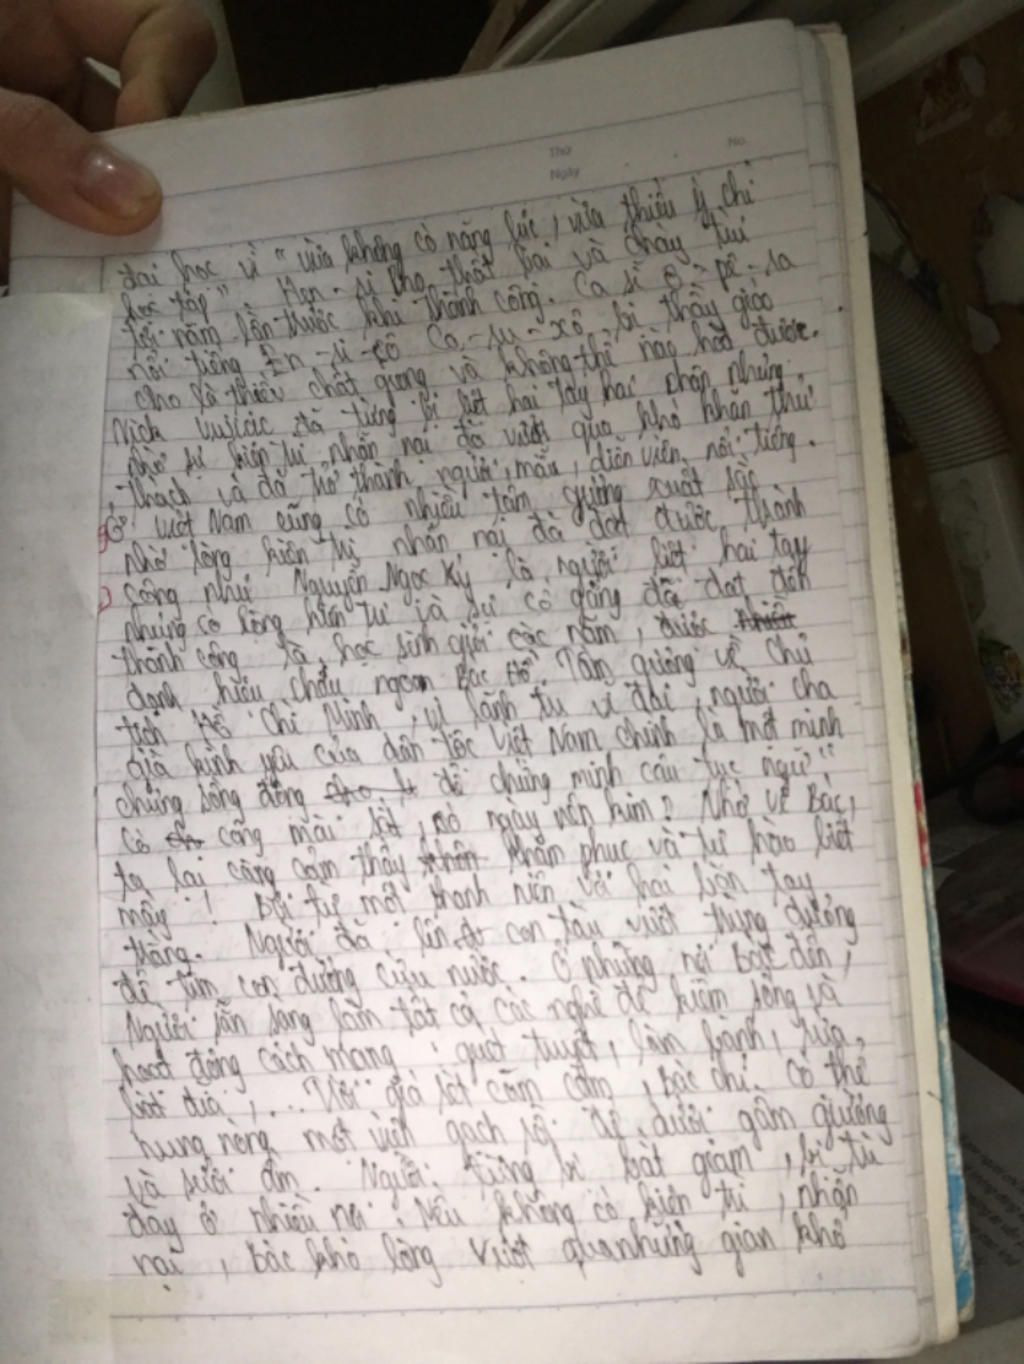 Thứ
No.
Ngày
đại học vì "vừa không có năng lực, vừa thiếu ý chí
học tập" Hen-ri Pho thất bại và cháy túi
tới năm lần trước khi thành công. Ca sĩ ô-pê-ra
nổi tiếng En-ri-cô Ca-ru-xô, bị thầy giáo
cho là thiếu chất giọng và không thể nào hát được.
Nick Vujicic đã từng bị liệt hai tay hai chân nhưng
nhờ sự kiên trì nhẫn nại đã vượt qua khó khăn thử
thách và đã trở thành người mẫu, diễn viên nổi tiếng.
Ở Việt Nam cũng có nhiều tấm gương xuất sắc
nhờ lòng kiên trì nhẫn nại đã đạt được thành
công như Nguyễn Ngọc Ký là người liệt hai tay
nhưng có lòng kiên trì và sự cố gắng đã đạt đến
thành công là học sinh giỏi các năm, được
danh hiệu cháu ngoan Bác Hồ. Tấm gương về Chủ
tịch Hồ Chí Minh, vị lãnh tụ vĩ đại, người cha
già kính yêu của dân tộc Việt Nam chính là một minh
chứng sống động để chứng minh câu tục ngữ "
Có công mài sắt, có ngày nên kim". Nhớ về Bác,
ta lại càng cảm thấy khâm phục và tự hào biết
mấy! Bởi từ một thanh niên với hai bàn tay
trắng. Người đã lên con tàu vượt trùng dương
để tìm con đường cứu nước. Ở những nơi Bác đến,
Người sẵn sàng làm tất cả các nghề để kiếm sống và
hoạt động cách mạng: quét tuyết, làm bánh, rửa
bát đĩa,... Với giá rét căm căm, Bác chỉ có thể
hung nóng một viên gạch rồi để dưới gầm giường
và sưởi ấm. Người từng bị bắt giam, bị tù
đày ở nhiều nơi. Nếu không có kiên trì, nhẫn
nại, Bác khó lòng vượt qua những gian khổ